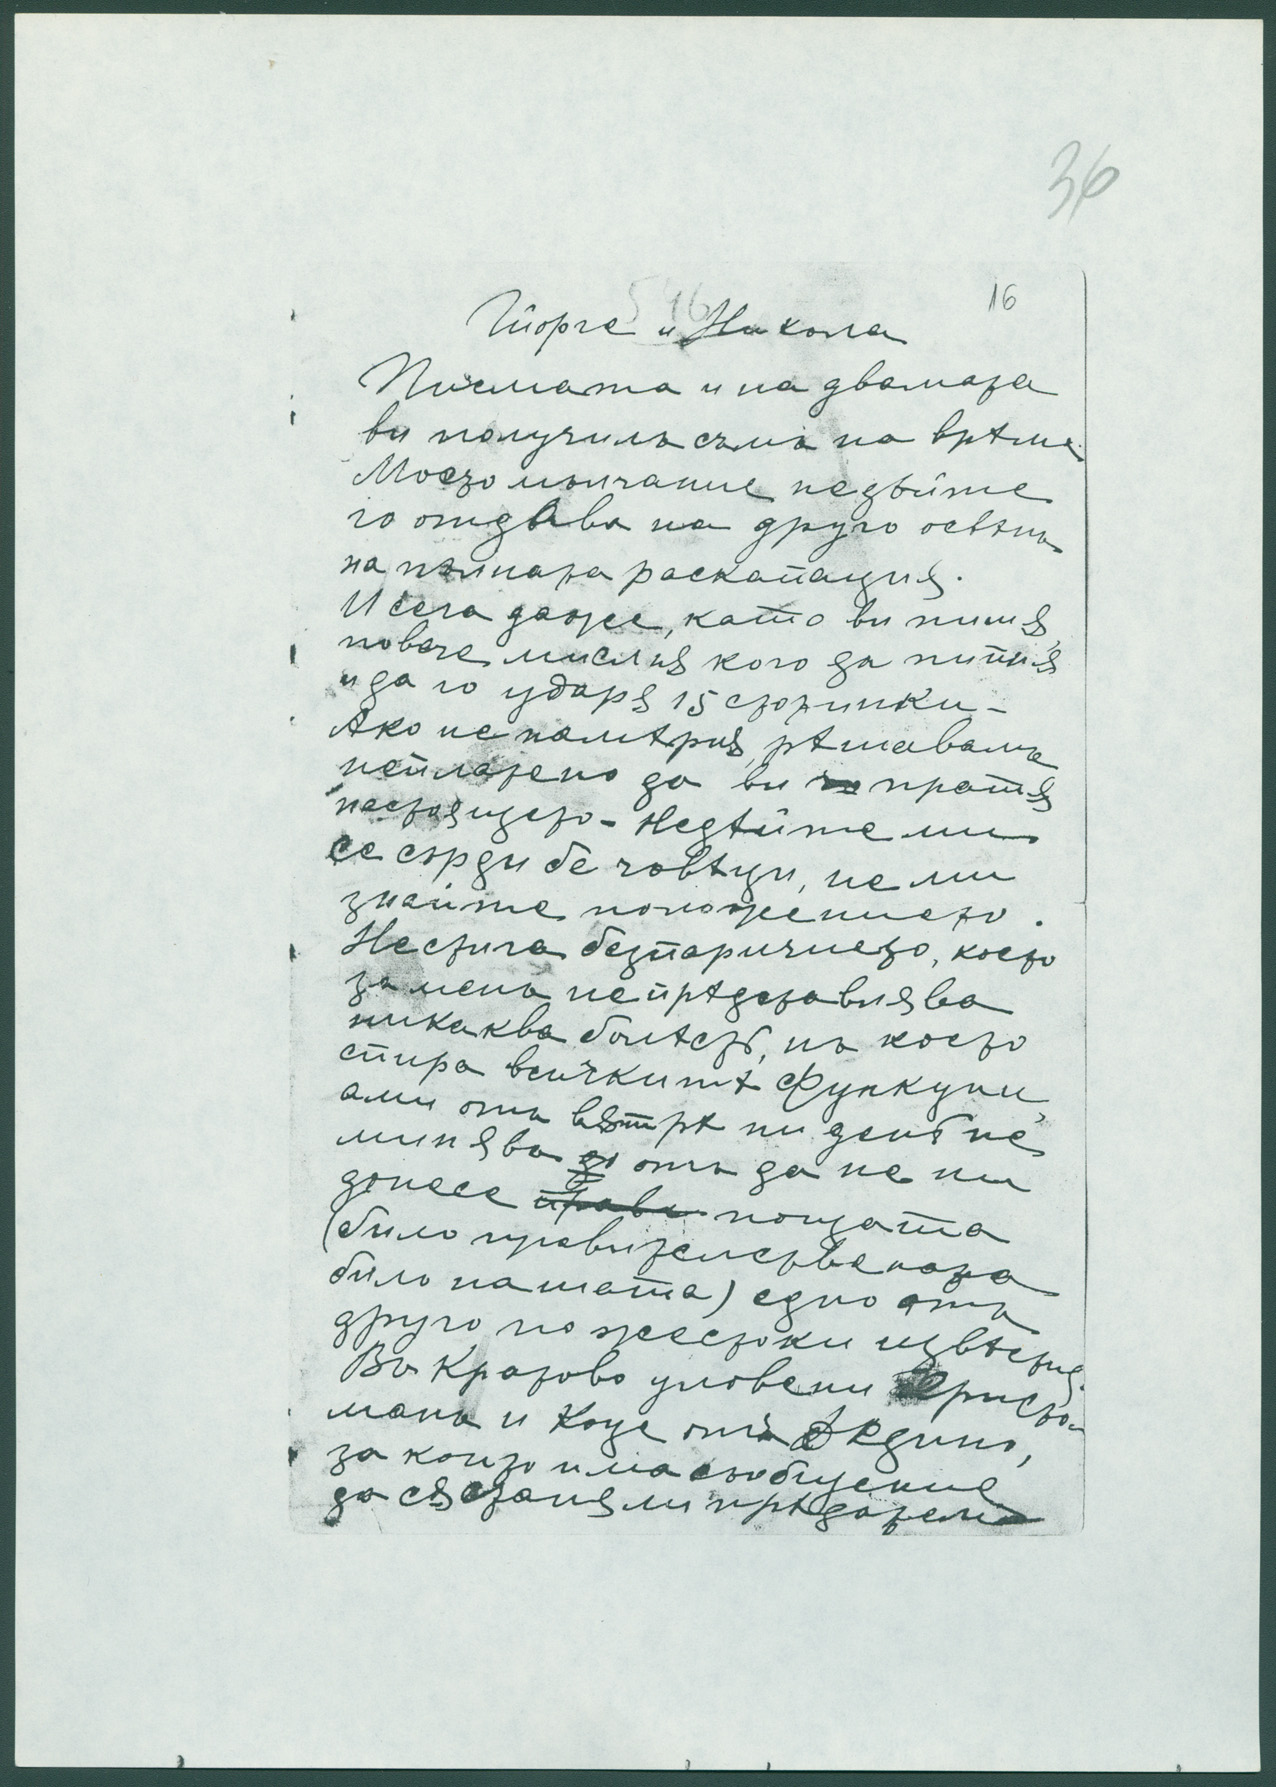 36
16
546
Гьорче и Никола
Писмата и на двамата
ви получилъ съмъ на врѣме.
Моето мълчание недѣйте
го отдава на друго освѣнъ
на пълната раскатация.
И сега даже, като ви пишѫ,
повече мислѭ кого да питаѭ
и да го ударѭ 15 стотинки –
Ако не намѣриѭ, рѣшавамъ
неплатено да ви пратѭ
настоящето – Недѣйте ми
се сърди бе човѣци, не ми
знайте положението.
Нестига безпаричието, което
за менъ не прѣдставлява
никаква болѣсть, нъ което
спира всичкитѣ функции,
ами отъ вѫтрѣ ни день не
минява отъ да не ни
донесе прави пощата
(било правителствената
било нашата) едно отъ
друго по жестоки извѣстия.
Въ Кратово уловени Ефристо-
манъ и Коце отъ Ѣдино,
за които има съобщение
да сѫ станѫли прѣдатели